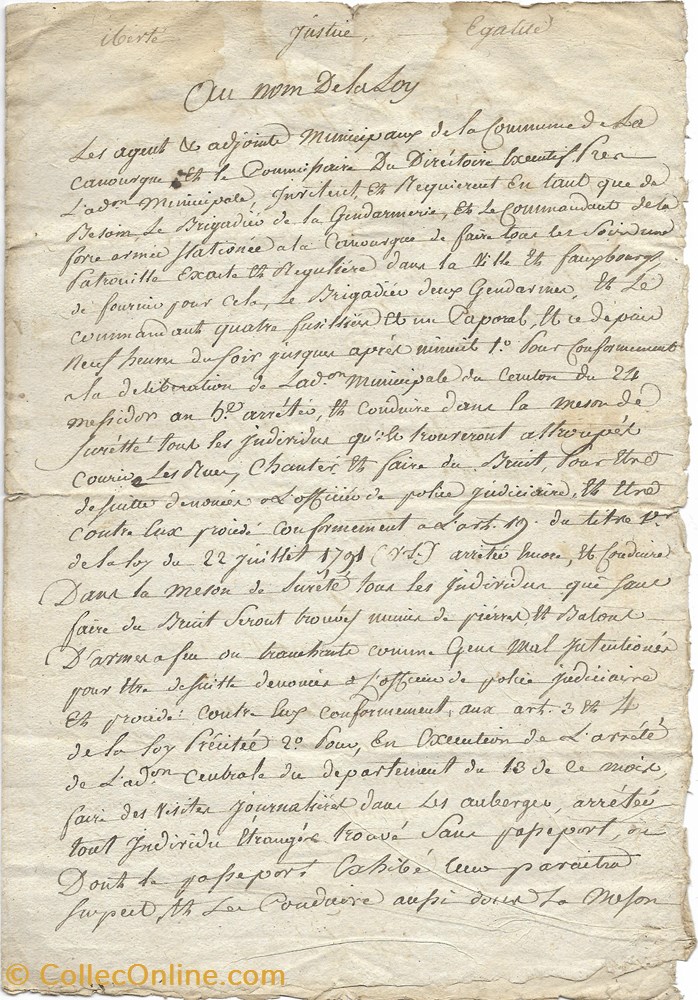 iberté Justice, Egalité
Au nom De la Loy
Les agent & adjoints Municipaux de la Commune de La
Canourgue Et le Commissaire Du Directoire Executif Pres
L'adon Municipale, Invitent, Et Requierent En tant que de
Besoin, Le Brigadier de la Gendarmerie, Et Le Commandant de la
force armée Stationée a la Canourgue de faire tous les Soirs une
Patrouille Exacte Et Reguliére dans la Ville Et fauxbourgs
de fournir pour cela, Le Brigadier deux Gendarmes, Et Le
commandant quatre fusilliers Et un Caporal, Et ce depuis
Neuf heures du Soir jusques aprés minuit 1.o Pour Conformement
a la deliberation de L'adon Municipale du Canton du 24
messidor an arrétér, Et Conduire dans la meson de
Surétté tous les individus qu'ils trouveront attroupés
Courir Les Rues, Chanter, Et faire du Bruit, Pour Etre
desuitte denoncés a L'officier de police judiciaire, Et Etre
contre Eux procédé conformement a L'art. 19. du titre 1er
de la loy du 22 juillet 1791 (V.S.) arrétér Encore, Et Conduire
Dans la meson de Sureté tous les individus qui sans
faire du Bruit Seront trouvés munis de pierres, Et Batons
D'armes a feu ou tranchante comme Gens mal Intentionés
pour Etre desuitte denoncés a L'officier de police judiciaire
Et procédé contre Eux conformement, aux art. 3 Et 4
de la loy Précitée 2.o Pour, En Execution de L'arrété
de L'adon Centrale du departement du 13 de ce mois,
faire des Visites journaliéres dans Les auberges, arrétér
tout individu Etranger trouvé Sans passeport, ou
Dont le passeport Exhibé Leur paraitra
suspect, Et Les Conduire aussi dans La Meson
© CollecOnline.com